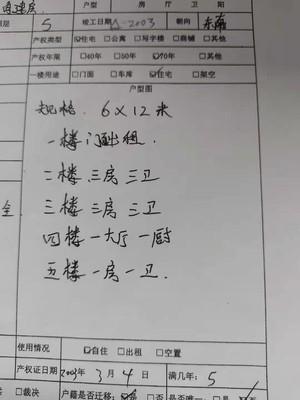 自建房 户型 房 厅 卫 阳
层 5 竣工日期 2003 朝向 东南
产权类型 ☑住宅 □公寓 □写字楼 □商铺 □其他
产权年限 □40年 □50年 ☑70年 □其他
一楼用途 □门面 □车库 □住宅 □架空
户型图
规格. 6×12米
一楼门面出租
二楼 三房 三卫
全 三楼 三房 三卫
四楼 一大厅 一厨
五楼 一房一卫.
使用情况 ☑自住 □出租 □空置
产权证日期 2003年 3月 4日 满几年: 5
□裁决 户籍是否迁移: 是 □否 是否唯一: